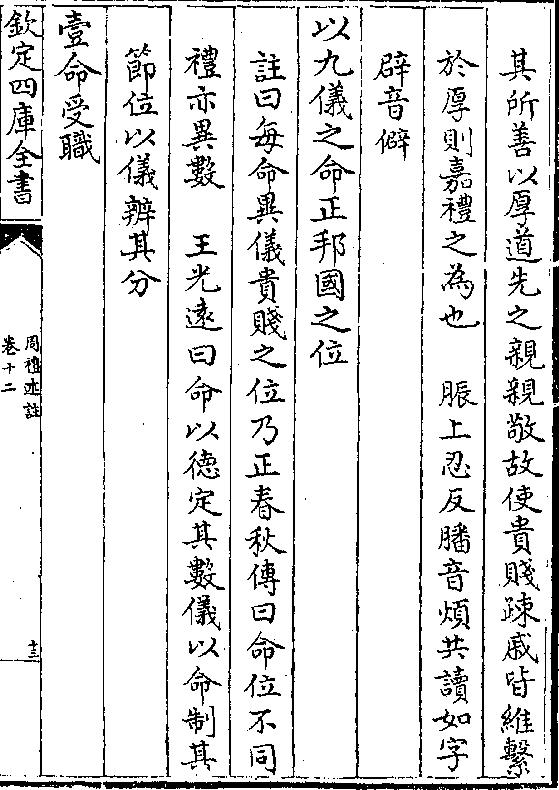 其所善以厚道先之親親敬故使貴賤踈戚皆維繫
於厚則嘉禮之為也　脤上忍反膰音煩共讀如字
辟音僻
以九儀之命正邦國之位
註曰每命異儀貴賤之位乃正春秋傳曰命位不同
禮亦異數　王光遠曰命以德定其數儀以命制其
節位以儀辨其分
壹命受職
欽定四庫全書
周禮述註
卷十二
十三